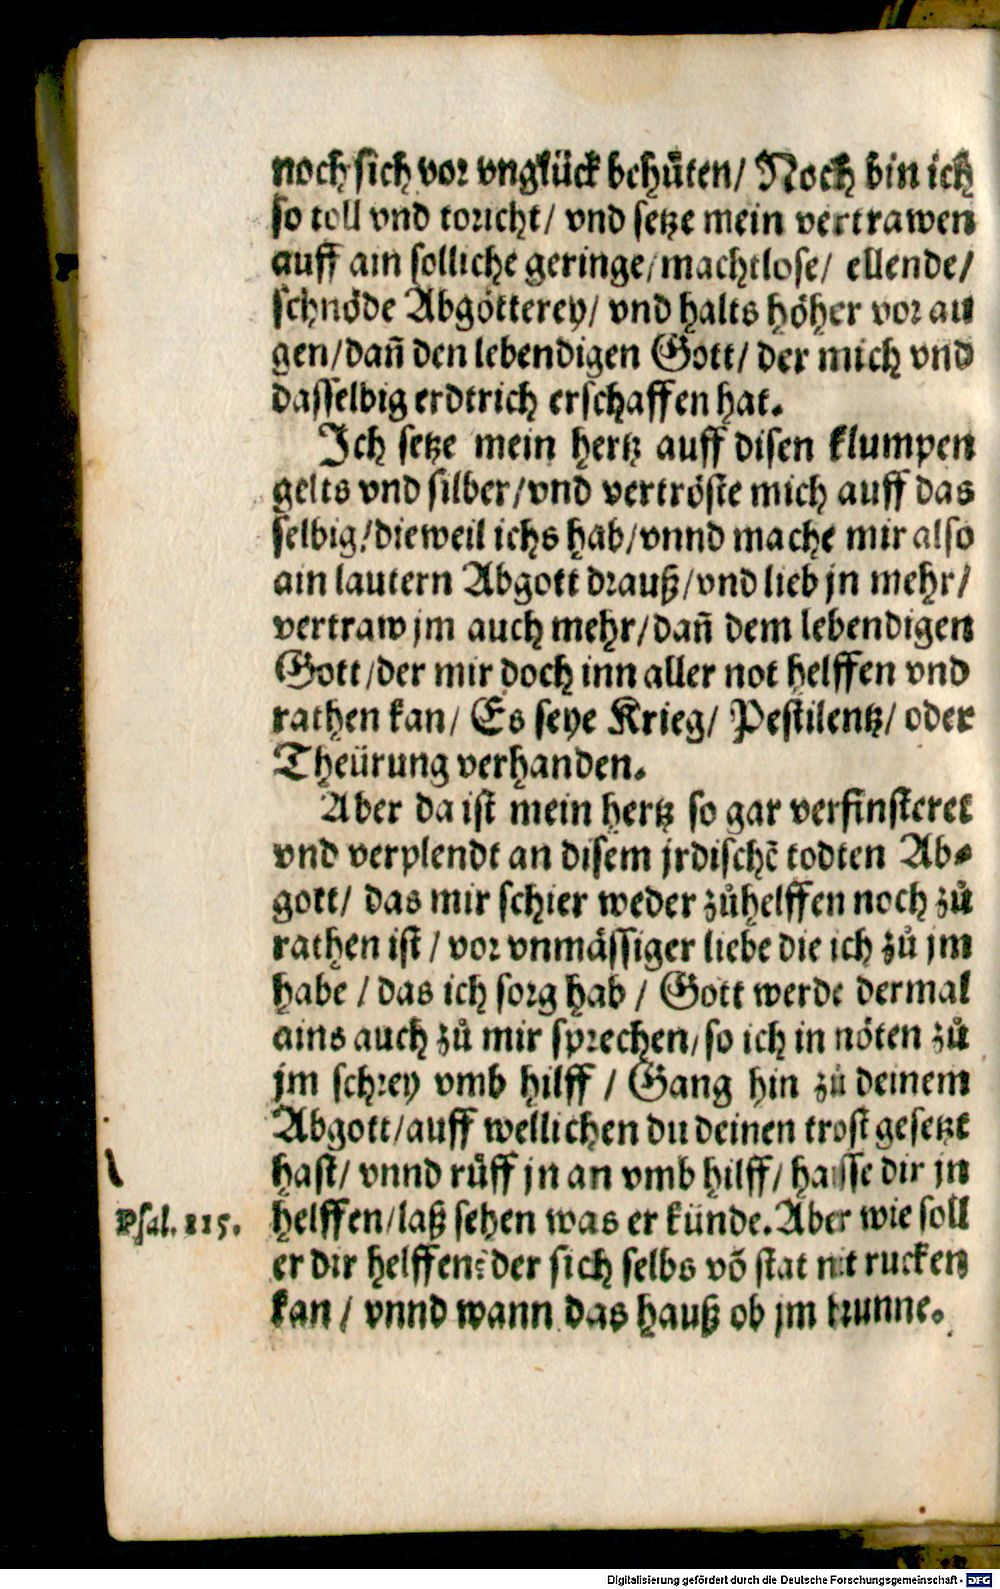 noch sich vor vnglück behuͤten/ Noch bin ich
so toll vnd toricht/ vnd setze mein vertrawen
auff ain solliche geringe/machtlose/ ellende/
schnoͤde Abgoͤtterey/ vnd halts hoͤher vor au
gen/dañ den lebendigen Gott/ der mich vnd
dasselbig erdtrich erschaffen hat.
Ich setze mein hertz auff disen klumpen
gelts vnd silber/vnd vertroͤste mich auff das
selbig/dieweil ichs hab/vnnd mache mir also
ain lautern Abgott drauß/vnd lieb jn mehr/
vertraw jm auch mehr/dañ dem lebendigen
Gott/der mir doch inn aller not helffen vnd
rathen kan/ Es seye Krieg/ Pestilentz/ oder
Theürung verhanden.
Aber da ist mein hertz so gar verfinsteret
vnd verplendt an disem jrdischē todten Ab-
gott/ das mir schier weder zuͦhelffen noch zuͦ
rathen ist/ vor vnmaͤssiger liebe die ich zuͦ jm
habe/ das ich sorg hab/ Gott werde dermal
ains auch zuͦ mir sprechen/so ich in noͤten zuͦ
jm schrey vmb hilff/ Gang hin zuͦ deinem
Abgott/auff wellichen du deinen trost gesetzt
hast/ vnnd ruͤff jn an vmb hilff/ haisse dir jn
Psal. 115. helffen/laß sehen was er künde. Aber wie soll
er dir helffen: der sich selbs vō stat nit rucken
kan/ vnnd wann das hauß ob jm brunne.
Digitalisierung gefördert durch die Deutsche Forschungsgemeinschaft - DFG